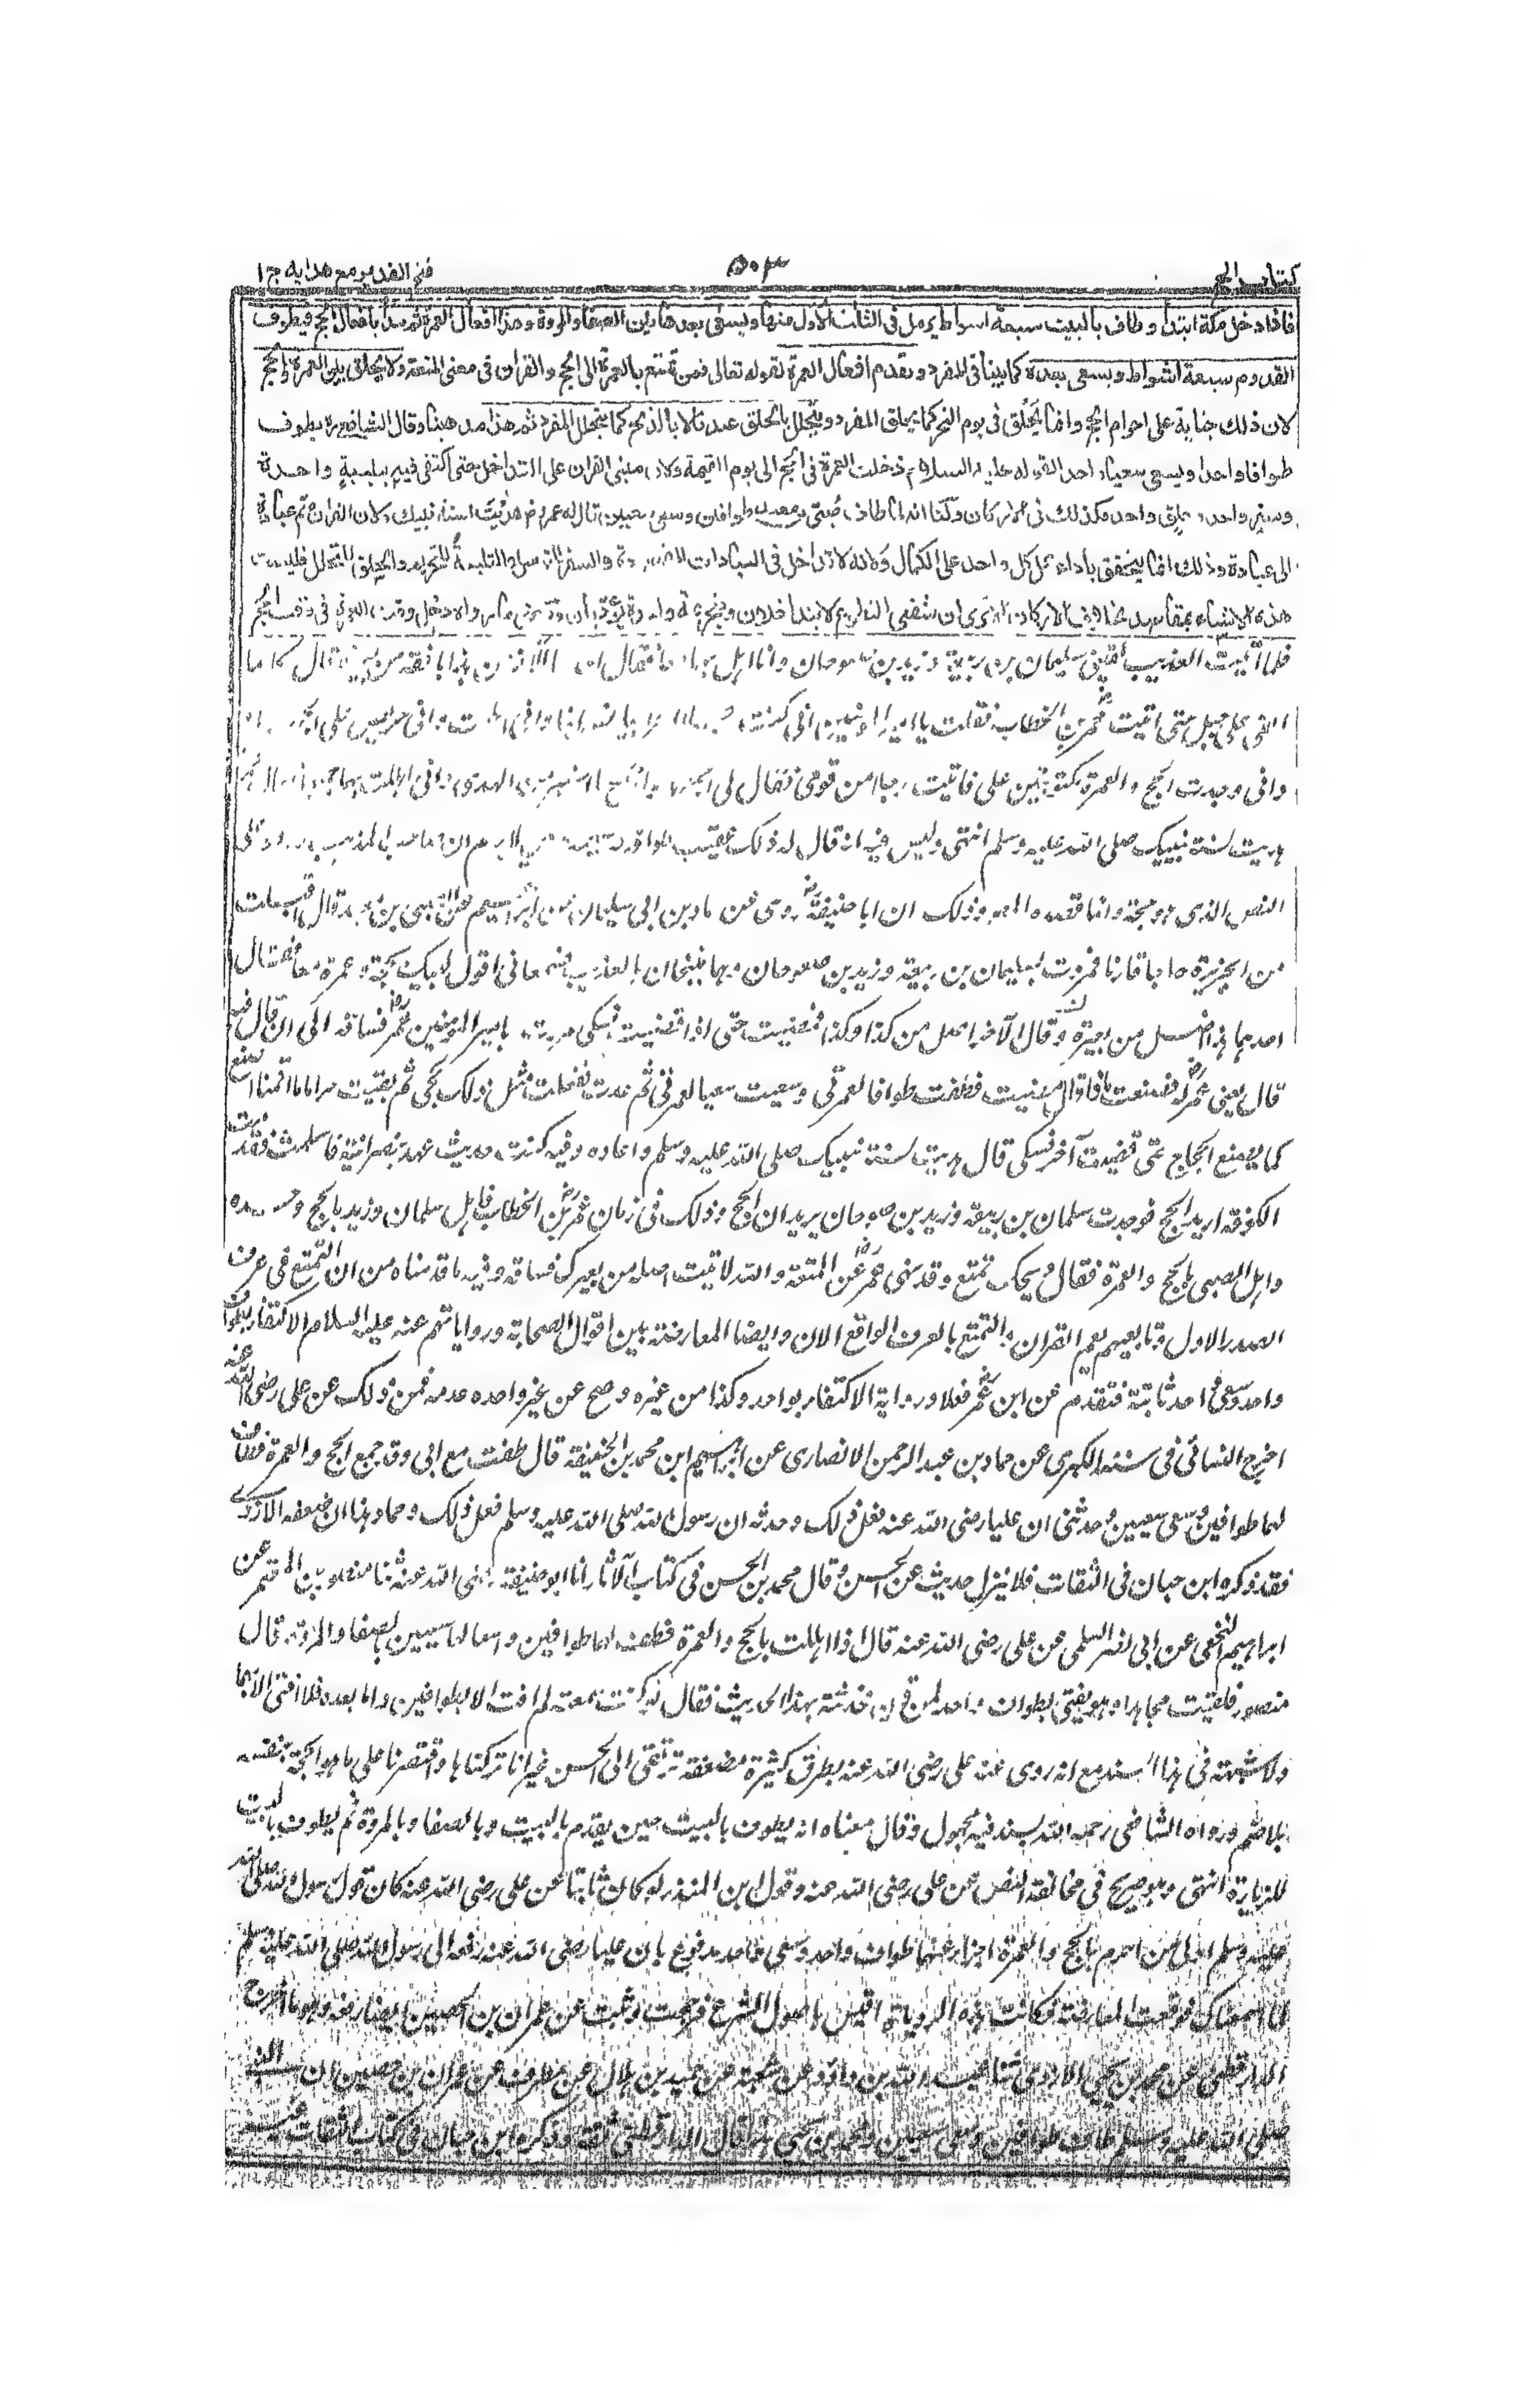 كتاب الحج
۵۰۳
فتح القدير مع هداية ج ۱
فاذا دخل مكة ابتدأ وطاف بالبيت سبعة اشواط يرمل فى الثلث الاول منها ويسعى بعدها بين الصفا والمروة وهذا افعال العمرة ثم يبدأ بافعال الحج فيطوف
القدوم سبعة اشواط ويسعى بعده كما بينا فى المفرد ويقدم افعال العمرة لقوله تعالى فمن تمتع بالعمرة الى الحج والقران فى معنى المتعة ولا يحلق بين العمرة والحج
لان ذلك جناية على احرام الحج وانما يحلق فى يوم النحر كما يحلق المفرد ويتحلل بالحلق عندنا لا بالذبح كما يتحلل المفرد ثم هذا مذهبنا وقال الشافعى ره يطوف
طوافا واحدا ويسعى سعيا واحدا لقوله عليه السلام دخلت العمرة فى الحج الى يوم القيمة ولان مبنى القران على التداخل حتى اكتفى فيه بتلبية واحدة
وسفر واحد وحلق واحد فكذلك فى الاركان ولنا انه لما طاف صبى بن معبد طوافين وسعى سعيين قال له عمر رض هديت لسنة نبيك ولان القران ضم عبادة
الى عبادة وذلك انما يتحقق باداء عمل كل واحد على الكمال ولانه لا تداخل فى العبادات المقصودة والسفر للتوسل والتلبية للتحريم والحلق للتحلل فليست
هذه الاشياء بمقاصد بخلاف الاركان
فلما اتيت العذيب لقينى سلمان بن ربيعة وزيد بن صوحان وانا اهل بهما فقال احدهما للآخر ما هذا بافقه من بعيره قال كانما
القى على جبل حتى اتيت عمر بن الخطاب فقلت يا امير المؤمنين انى كنت
وانى وجدت الحج والعمرة مكتوبتين على فاتيت رجلا من قومى فقال لى اجمعهما واذبح ما استيسر من الهدى وانى اهللت بهما جميعا فقال عمر
هديت لسنة نبيك صلى الله عليه وسلم انتهى وليس فيه انه قال له ذلك عقيب طوافه
النص الذى هو حجة وانما فعله وذلك ان ابا حنيفة رض روى عن حماد بن ابى سليمان عن ابراهيم عن الصبى بن معبد قال اقبلت
من الجزيرة حاجا قارنا فمررت بسليمان بن ربيعة وزيد بن صوحان وهما منيخان بالعذيب فسمعانى اقول لبيك بحجة وعمرة معا فقال
احدهما هذا اضل من بعيره وقال الآخر هذا اضل من كذا وكذا فمضيت حتى اذا قضيت نسكى مررت بامير المؤمنين عمر رض فساقه الى ان قال فيه
قال يعنى عمر له فصنعت ماذا قال مضيت فطفت طوافا لعمرتى وسعيت سعيا لعمرتى ثم عدت ففعلت مثل ذلك لحجى ثم بقيت حراما ما اقمنا اصنع
كما يصنع الحاج حتى قضيت آخر نسكى قال هديت لسنة نبيك صلى الله عليه وسلم واعاده وفيه كنت حديث عهد بنصرانية فاسلمت فقدمت
الكوفة اريد الحج فوجدت سلمان بن ربيعة وزيد بن صوحان يريدان الحج وذلك فى زمان عمر بن الخطاب فاهل سلمان وزيد بالحج وحده
واهل الصبى بالحج والعمرة فقالا ويحك تمتع وقد نهى عمر عن المتعة والله لانت اضل من بعيرك فساقه وفيه ما قدمناه من ان التمتع فى عرف
الصدر الاول وتابعيهم يعم القران والتمتع بالعرف الواقع الان وايضا المعارضة بين اقوال الصحابة ورواياتهم عنه عليه السلام الاكتفاء بطواف
واحد وسعى واحد ثابتة فتقدم عن ابن عمر فعلا ورواية الاكتفاء بواحد وكذا من غيره وصح عن غير واحد عدمه فمن ذلك عن على رضى الله عنه
اخرج النسائى فى سننه الكبرى عن حماد بن عبد الرحمن الانصارى عن ابراهيم ابن محمد بن الحنفية قال طفت مع ابى وقد جمع الحج والعمرة فطاف
لهما طوافين وسعى سعيين وحدثنى ان عليا رضى الله عنه فعل ذلك وحدثه ان رسول الله صلى الله عليه وسلم فعل ذلك وحماد هذا ان ضعفه الازدى
فقد ذكره ابن حبان فى الثقات فلا ينزل حديثه عن الحسن وقال محمد بن الحسن فى كتاب الآثار انا ابو حنيفة رضى الله عنه ثنا منصور بن المعتمر عن
ابراهيم النخعى عن ابى نصر السلمى عن على رضى الله عنه قال اذا اهللت بالحج والعمرة فطف لهما طوافين واسع لهما سعيين بالصفا والمروة قال
منصور فلقيت مجاهدا وهو يفتى بطواف واحد لمن قرن فحدثته بهذا الحديث فقال لو كنت سمعته لم افت الا بطوافين واما بعده فلا افتى الا بهما
ولا شبهة فى هذا السند مع انه روى عنه على رضى الله عنه بطرق كثيرة مضعفة ترتقى الى الحسن غير انا تركناها واقتصرنا على ما هو الحجة بنفسه
بلا ضم ورواه الشافعى رحمه الله بسند فيه مجهول وقال معناه انه يطوف بالبيت حين يقدم بالبيت وبالصفا وبالمروة ثم يطوف بالبيت
للزيارة انتهى وهو صريح فى مخالفة النص عن على رضى الله عنه وقول ابن المنذر لو كان ثابتا عن على رضى الله عنه كان قول رسول الله صلى الله
عليه وسلم اولى من احرم بالحج والعمرة اجزأه عنهما طواف واحد وسعى واحد مدفوع بان عليا رضى الله عنه رفعه الى رسول الله صلى الله عليه وسلم
كما اسمعناك فوقعت المعارضة فكانت هذه الرواية اقيس باصول الشرع فرجحت وثبت عن عمران بن الحصين ايضا رفعه وهو ما اخرج
الدارقطنى عن محمد بن يحيى الازدى ثنا عبد الله بن داود عن شعبة عن حميد بن هلال عن مطرف عن عمران بن حصين ان النبى
صلى الله عليه وسلم طاف طوافين وسعى سعيين ومحمد بن يحيى هذا قال الدارقطنى ثقة وذكره ابن حبان فى كتاب الثقات